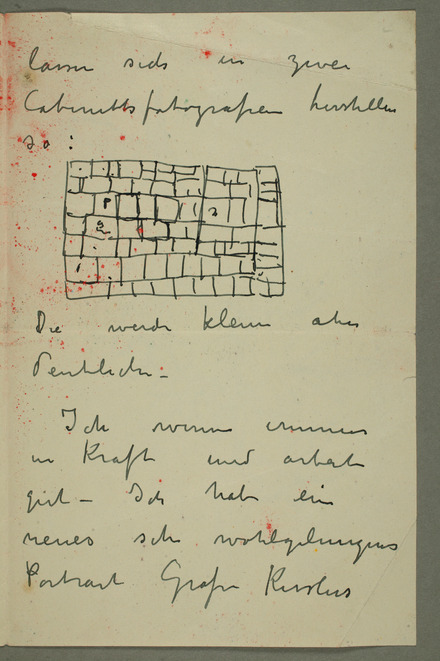 lassen sich in zwei
Cabinettsfotografien herstellen
so:
Die werde klein aber
deutlich –
Ich immer
in Kraft und arbeit
gut – Ich habe ein
neues sehr wohlgelungenes
Portrait Grafen Kesslers